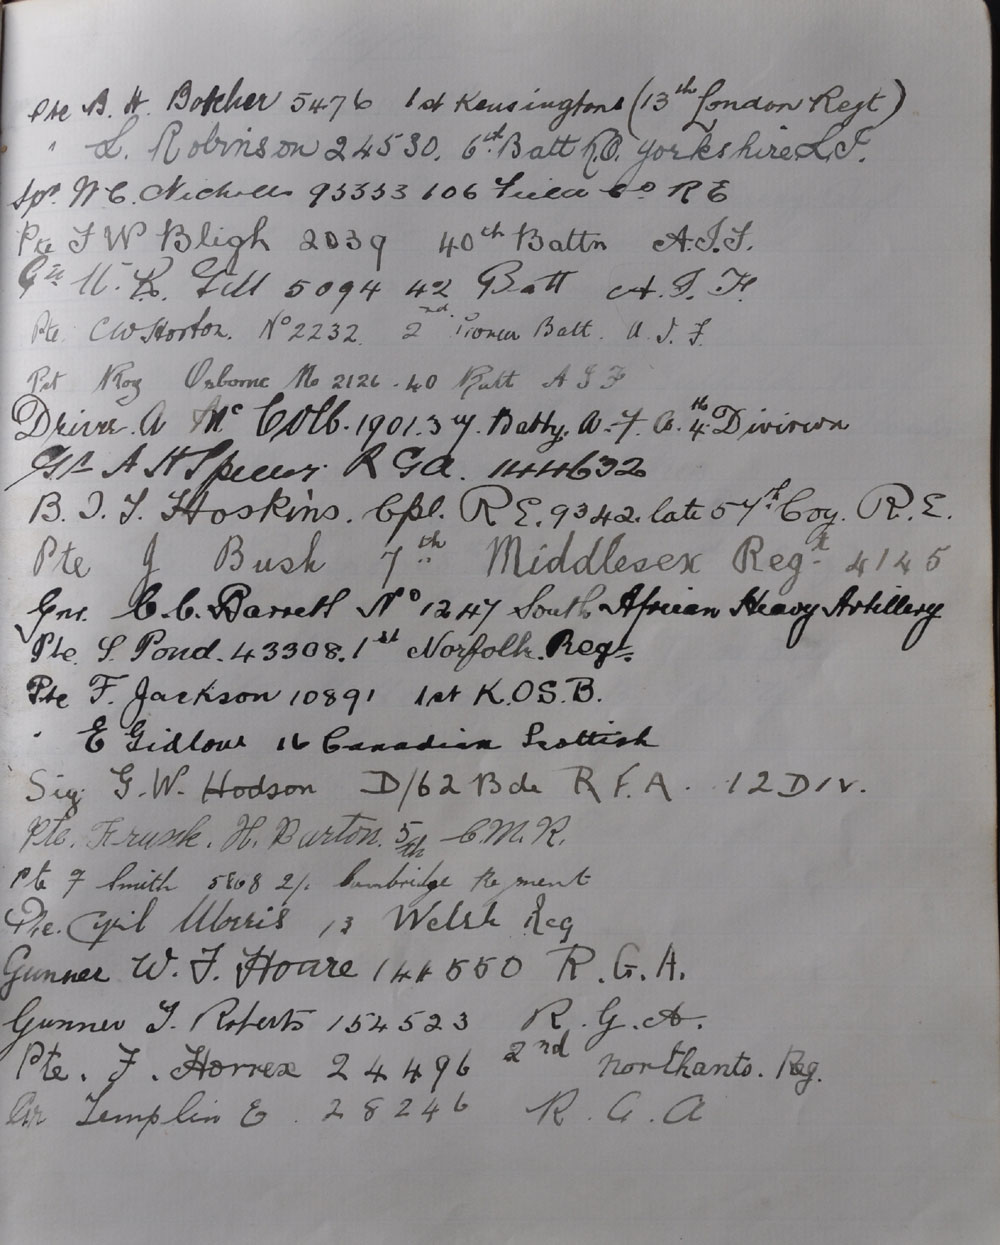 Pte B. H. Botcher 5476 1st Kensingtons (13th London Regt)
" L. Robinson 24530. 6st Batt K.O. Yorkshire L.I.
Spr W C. Nicholls 93353 106 Field Co R E
Pte F W Bligh 2039 40th Battn A.I.F.
Gnr Gill 5094 42 Batt A. I. F.
Pte C W Horton. No 2232. 2nd Pioneer Batt. A. I. F.
Pvt Roy Osborne No 2126. 40 Batt A I F
Driver. A McColl. 1901. 37. Batty. A. F. A. 4th Division
Gr A H Spencer R G A. 144632
B. I. F. Hoskins. Cpl. R E. 9342. late 57st Coy. R. E.
Pte J Bush 7th Middlesex Regt 4145
Gnr. C. C. Barrett No 1247 South African Heavy Artillery
Pte. S. Pond. 43308. 1st Norfolk. Regt.
Pte F. Jackson 10891 1st K.O.S.B.
" E Gidlow 16 Canadian Scottish
Sig. G. W. Hodson D/62 Bde R. F. A. 12 Div.
Pte. Frank. H. Barton. 5th C. M. R.
Pte F Smith 5868 2/1 Cambridge Regment
Pte. Cyril Morris 13 Welsh Reg
Gunner W. F. Hoare 144550 R. G. A.
Gunner T. Roberts 154523 R. G. A.
Pte. F. Horrex 24496 2nd Northants. Reg.
Gr Templin E. 28246 R. G. A